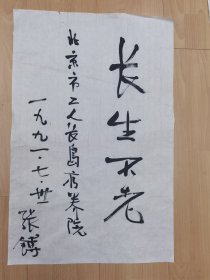 长生不老
北京市工人长岛疗养院
一九九一·七·卅一
张镈